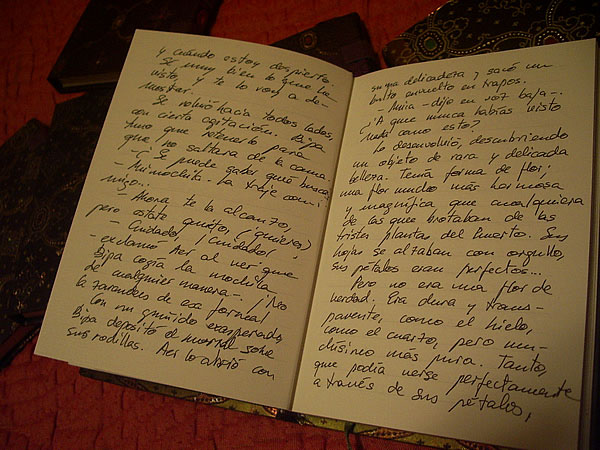 y cuándo estoy despierto.
Sé muy bien lo que he
visto, y te lo voy a de-
mostrar.
Se volvió hacia todos lados,
con cierta agitación. Bipa
tuvo que retenerlo para
que no saltara de la cama.
- ¿Se puede saber qué buscas?
- Mi mochila. La traje con-
migo...
- Ahora te la alcanzo,
pero estate quieto, ¿quieres?
- ¡Cuidado! ¡Cuidado!
- exclamó Aer al ver que
Bipa cogía la mochila
de cualquier manera-. ¡No
la zarandees de esa forma!
Con un gruñido exasperado,
Bipa depositó el morral sobre
sus rodillas. Aer lo abrió con
suma delicadeza y sacó un
bulto envuelto en trapos.
- Mira - dijo en voz baja-.
¿A que nunca habías visto
nada como esto?
Lo desenvolvió, descubriendo
un objeto de rara y delicada
belleza. Tenía forma de flor;
una flor mucho más hermosa
y magnífica que cualquiera
de las que brotaban de las
tristes plantas del huerto. Sus
hojas se alzaban con orgullo,
sus pétalos eran perfectos...
Pero no era una flor de
verdad. Era dura y trans-
parente, como el hielo,
como el cuarzo, pero mu-
chísimo más pura. Tanto,
que podía verse perfectamente
a través de sus pétalos,